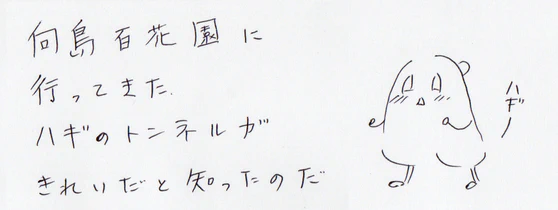 向島百花園に
行ってきた.
ハギのトンネルが
きれいだと知ったのだ
ハギ!